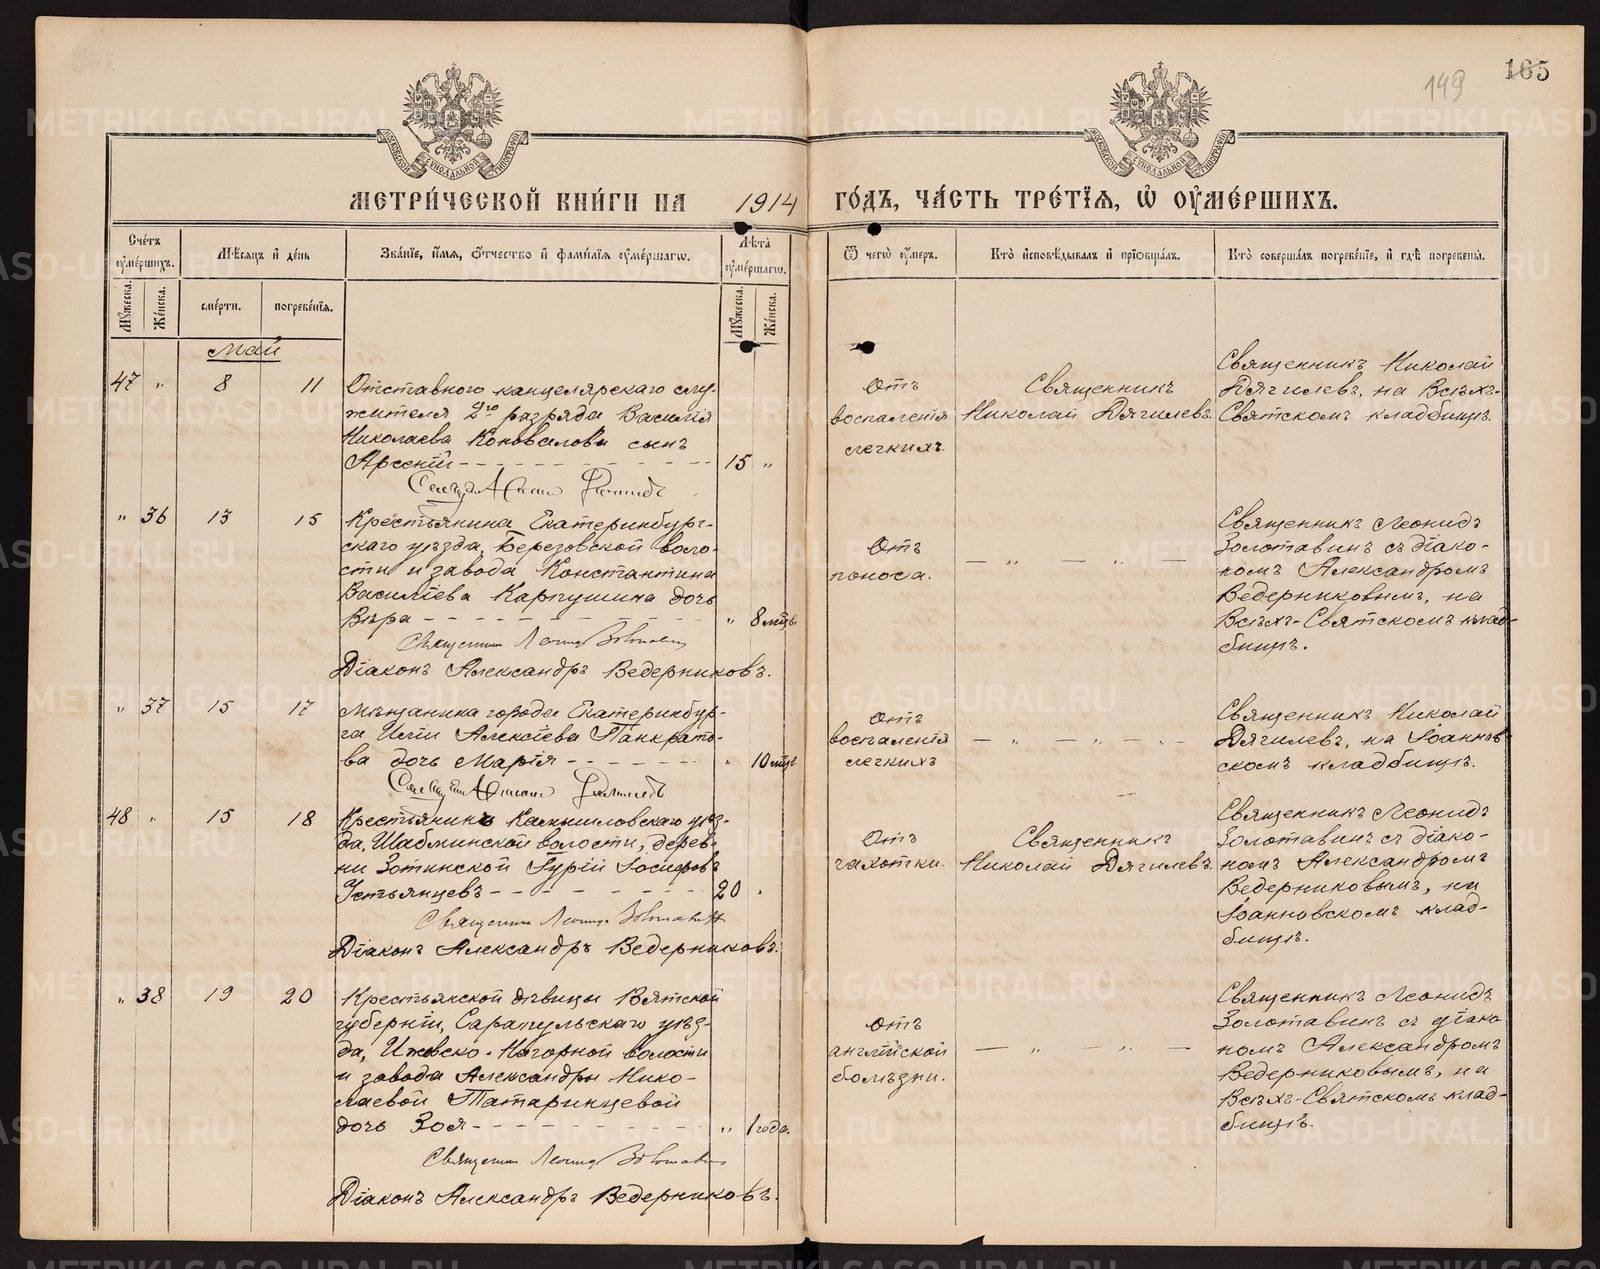 149
165
МЕТРИ́ЧЕСКОЙ КНИ́ГИ НА 1914 ГО́ДЪ, ЧА́СТЬ ТРЕ́ТІѦ, Ѡ҆ ОУ҆МЕ́РШИХЪ.
Сче́тъ оу҆ме́ршихъ.
Мꙋ́жеска.
Же́нска.
Мѣ́сяцъ и҆ де́нь
сме́рти.
погребе́нїя.
Зва́нїе, и҆́мя, ѻ҆́тчество и҆ фами́лїя оу҆ме́ршагѡ.
Лѣ́та оу҆ме́ршагѡ.
Мꙋ́жеска.
Же́нска.
Ѿ чегѡ̀ оу҆́меръ.
Кто̀ и҆сповѣ́дывалъ и҆ прїѻбща́лъ.
Кто̀ соверша́лъ погребе́нїе, и҆ гдѣ̀ погребены̀.
Май
47 " 8 11
Отставного канцелярскаго слу-
жителя 2го разряда Василія
Николаева Коновалова сынъ
Арсеній - - - - - - - - - 15 "
Отъ
воспаленія
легкихъ.
Священникъ
Николай Дягилевъ.
Священникъ Николай
Дягилевъ, на Всѣхъ-
Святскомъ кладбищѣ.
" 36 13 15
Крестьянина Екатеринбург-
скаго уѣзда, Березовской воло-
сти и завода Константина
Василіева Карпушина дочь
Вѣра - - - - - - - - - " 8 мцъв
Священник Леонид Золотавин
Діаконъ Александръ Ведерниковъ.
Отъ
поноса.
— " — " —
Священникъ Леонидъ
Золотавинъ съ діако-
номъ Александромъ
Ведерниковымъ, на
Всѣхъ-Святскомъ клад-
бищѣ.
" 37 15 17
Мѣщанина города Екатеринбур-
га Иліи Алексіева Панкрато-
ва дочь Марія - - - - - - " 10 мцъв
Отъ
воспаленія
легкихъ
— " — " — " —
Священникъ Николай
Дягилевъ, на Іоаннов-
скомъ кладбищѣ.
48 " 15 18
Крестьянинъ Камышловскаго уѣз-
да, Шаблинской волости, дерев-
ни Зотинской Гурій Іосифовъ
Устьянцевъ - - - - - - - - 20 "
Священник Леонид Золотавин
Діаконъ Александръ Ведерниковъ.
Отъ
чахотки.
Священникъ
Николай Дягилевъ.
Священникъ Леонидъ
Золотавинъ съ діако-
номъ Александромъ
Ведерниковымъ, на
Іоанновскомъ клад-
бищѣ.
" 38 19 20
Крестьянской дѣвицы Вятской
губерніи, Сарапульскаго уѣз-
да, Ижевско-Нагорной волости
и завода Александры Нико-
лаевой Татаринцевой
дочь Зоя - - - - - - - - - " 1 года.
Священник Леонид Золотавин
Діаконъ Александръ Ведерниковъ.
Отъ
англійской
болѣзни.
— " — " —
Священникъ Леонидъ
Золотавинъ съ діако
номъ Александромъ
Ведерниковымъ, на
Всѣхъ-Святскомъ клад-
бищѣ.
METRIKI.GASO-URAL.RU